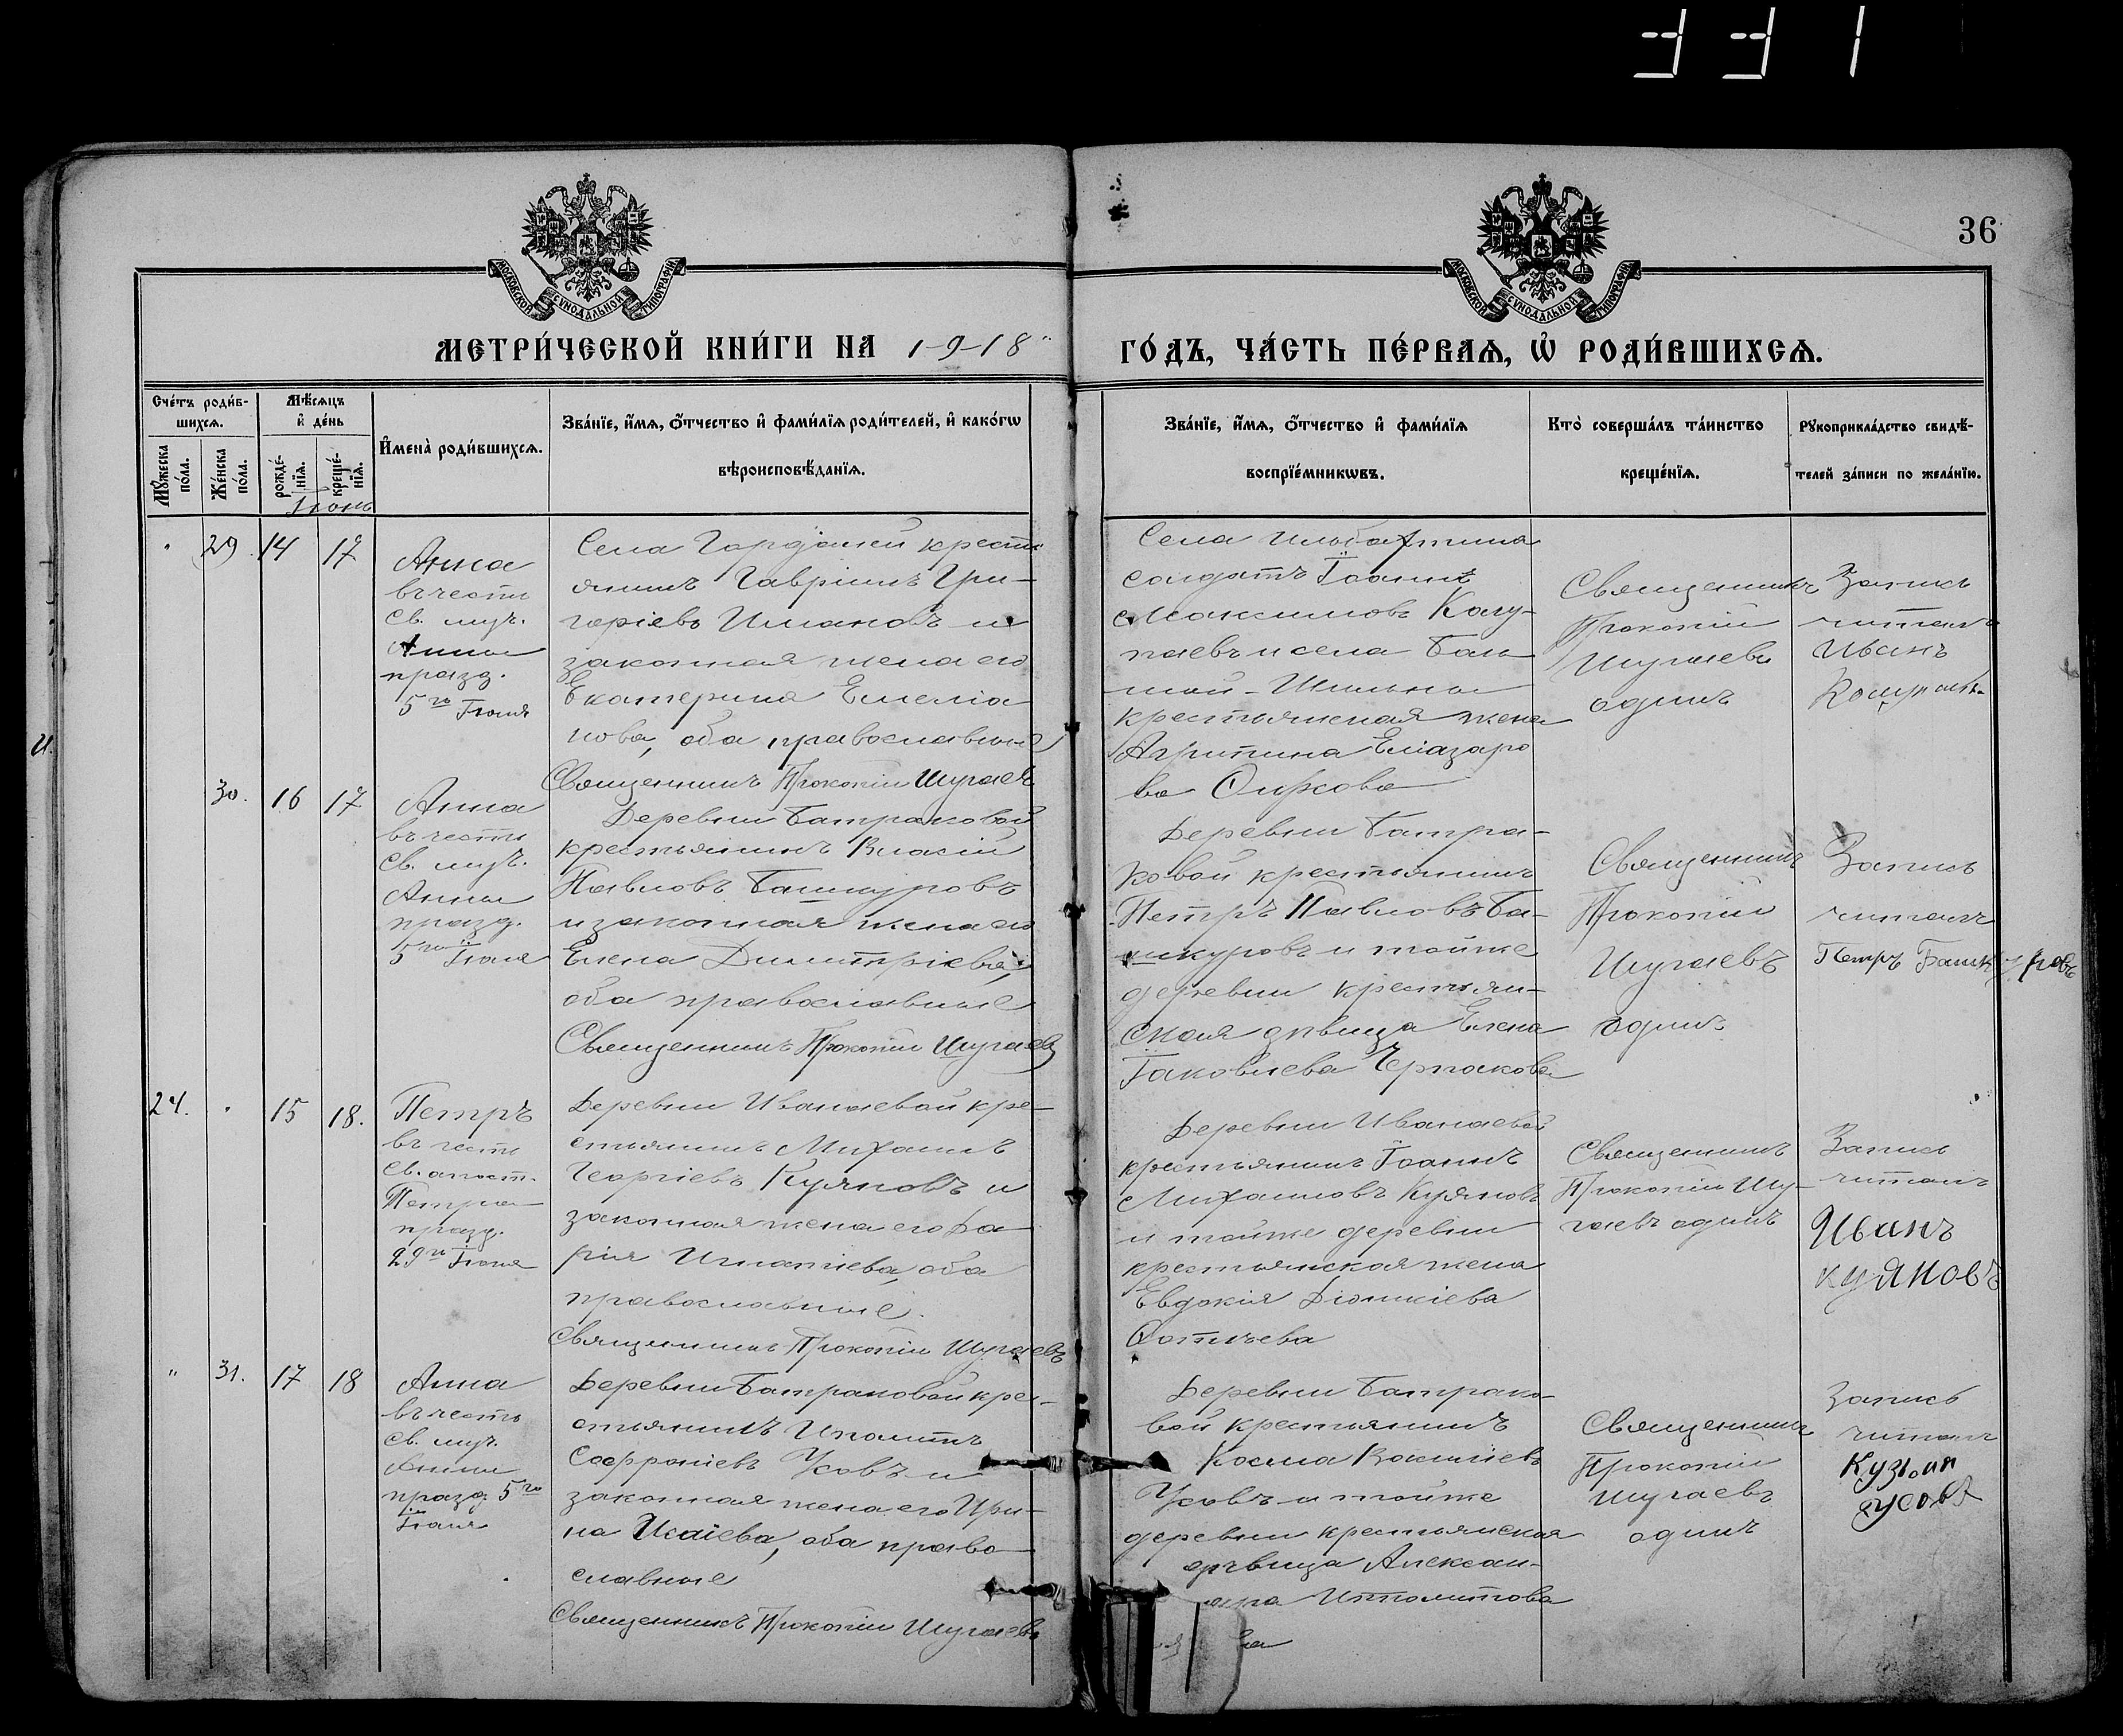 331
36
МОСКОВСКОЙ СѴНОДАЛЬНОЙ ТИПОГРАФІИ
МОСКОВСКОЙ СѴНОДАЛЬНОЙ ТИПОГРАФІИ
МЕТРИ́ЧЕСКОЙ КНИ́ГИ НА 1918
ГО́ДЪ, ЧА́СТЬ ПЕ́РВАѦ, Ѡ҆ РОДИ́ВШИХСѦ.
Сче́тъ роди́в-
шихсѧ.
Мꙋ́жеска по́ла.
Же́нска по́ла.
Мѣ́сѧцъ
и҆ де́нь
рожде́-
нїѧ.
креще́-
нїѧ.
Іюнь
И҆мена̀ роди́вшихсѧ.
Зва́нїе, и҆́мѧ, ѻ҆́тчество и҆ фами́лїѧ роди́телей, и҆ како́гѡ
вѣроисповѣ́данїѧ.
Зва́нїе, и҆́мѧ, ѻ҆́тчество и҆ фами́лїѧ
воспрїе́мникѡвъ.
Кто̀ соверша́лъ та́инство
креще́нїѧ.
Рꙋкоприкла́дство свидѣ́-
телей за́писи по жела́нїю.
29 14 17
Анна
въ честь
св. муч.
Анны
празд.
5го Іюля
крестья
янинъ Гавріилъ Гри-
горіевъ Имановъ и
законная жена его
Екатерина Емеліа
нова, оба православные
Священникъ Прокопій Шугаевъ
Села
солдатъ Іоаннъ
Максимовъ
и села
крестьянская жена
Агрипина Еліазаро
ва
Священникъ
Прокопій
Шугаевъ
одинъ
Запись
читалъ
Иванъ
30. 16 17
Анна
въ честь
св. муч.
Анны
празд.
5го Іюля
Деревни Батраковой
крестьянинъ Власій
Павловъ Башкуровъ
и законная жена его
Елена Димитріева,
оба православные
Священникъ Прокопій Шугаевъ
Деревни Батра-
ковой крестьянинъ
Петръ Павловъ Ба-
шкуровъ и тойже
деревни крестьян-
ская дѣвица Елена
Іаковлева Чермакова
Священникъ
Прокопій
Шугаевъ
одинъ
Запись
читалъ
Петръ Башкуровъ
24. 15 18.
Петръ
въ честь
св. апост.
Петра
празд.
29го Іюня
Деревни Иванаевой кре-
стьянинъ Михаилъ
Георгіевъ Куяновъ и
законная жена его Да
рія Игнатіева, оба
православные.
Священникъ Прокопій Шугаевъ
Деревни Иванаевой
крестьянинъ Іоаннъ
Михаиловъ Куяновъ
и тойже деревни
крестьянская жена
Евдокія Діонисіева
Священникъ
Прокопій Шу-
гаевъ одинъ
Запись
читалъ
Иванъ
куяновъ
31. 17 18
Анна
въ честь
св. муч.
Анны
празд. 5го
Іюля
Деревни Батраковой кре-
стьянинъ Иполитъ
Софроніевъ Усовъ и
законная жена его Ири-
на Исаіева, оба право
славные
Священникъ Прокопій Шугаевъ
Деревни Батрако-
вой крестьянинъ
Косма Василіевъ
Усовъ и тойже
деревни крестьянская
дѣвица Алексан-
дра Ипполитова
Священникъ
Прокопій
Шугаевъ
одинъ
Запись
читалъ
Кузьма
усовъ